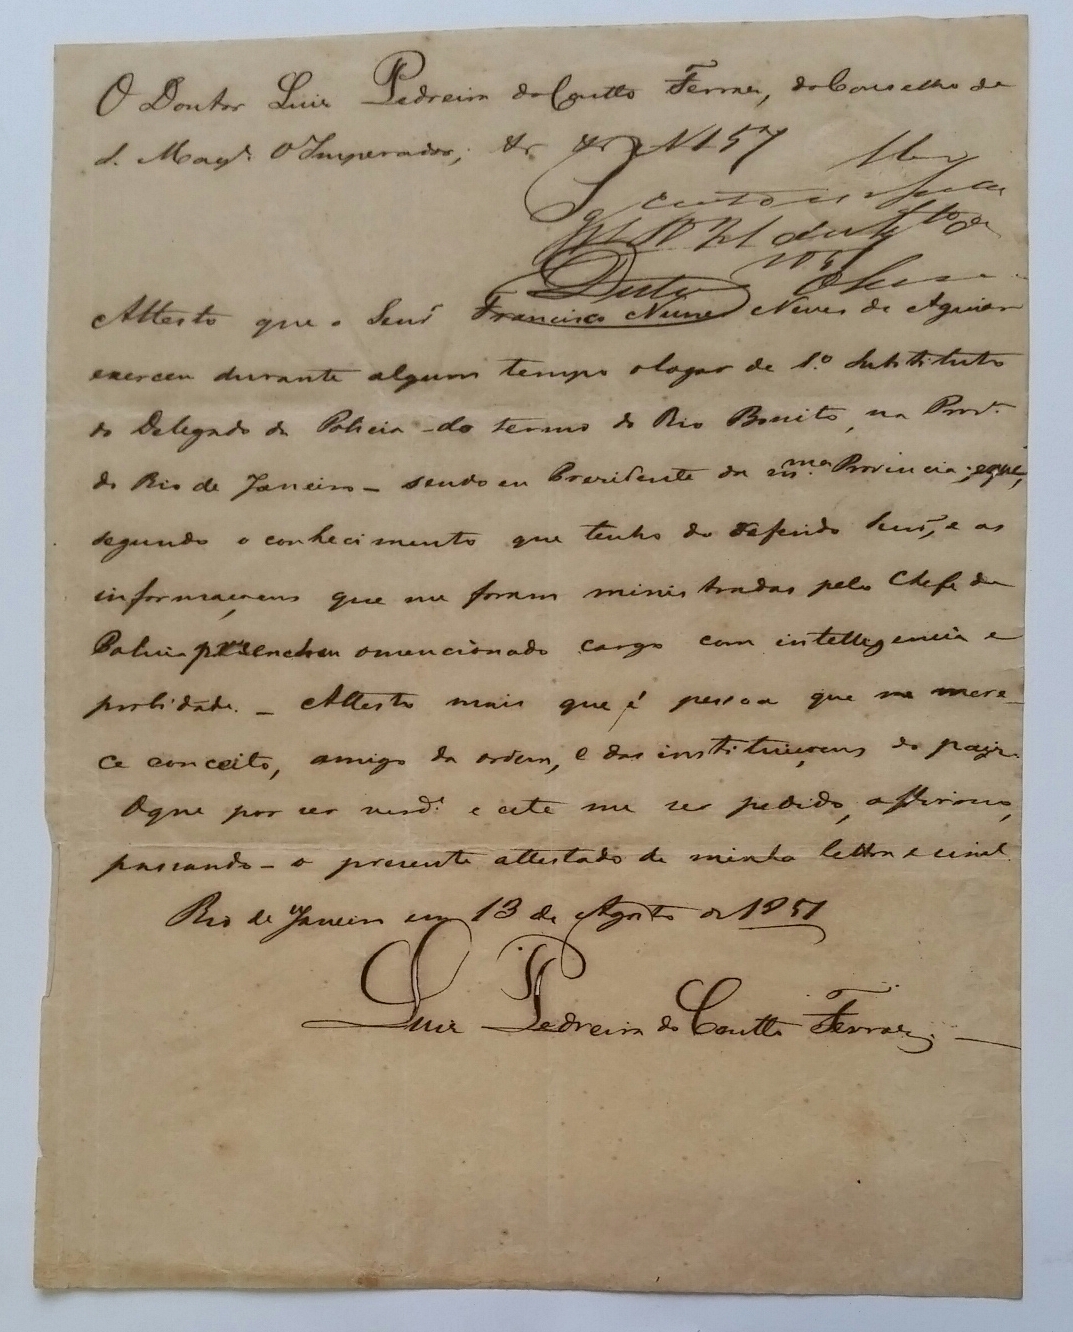 O Doutor Luiz Pedreira do Coutto Ferraz, do Conselho de
S. Magde. O Imperador, &r &r
N 157
Attesto que o Senr. Francisco Nunes Neves de Aguiar
exerceu durante algum tempo o logar de 1.º Substituto
do Delegado de Policia do termo do Rio Bonito, na Prov.ª
do Rio de Janeiro – sendo eu Presidente da msma Provincia; e que,
segundo o conhecimento que tenho do referido Senr., e as
informaçoens que me foram ministradas pelo Chefe de
Policia preencheu o mencionado cargo com intelligencia e
probidade. – Attesto mais que é pessoa que me mere-
ce conceito, amigo da ordem, e das instituiçoens do paiz.
O que por ser verd.e e este me ser pedido, affirmo,
passando – o presente attestado de minha lettra e sinal.
Rio de Janeiro em 13 de Agosto de 1851
Luiz Pedreira do Coutto Ferraz.